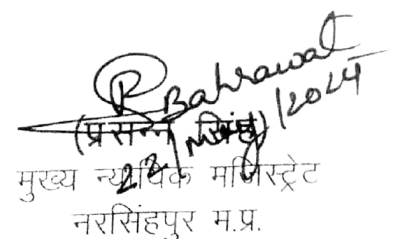 R Bahrawat
(प्रसन्न सिंह)
22/May/2024
मुख्य न्यायिक मजिस्ट्रेट
नरसिंहपुर म.प्र.